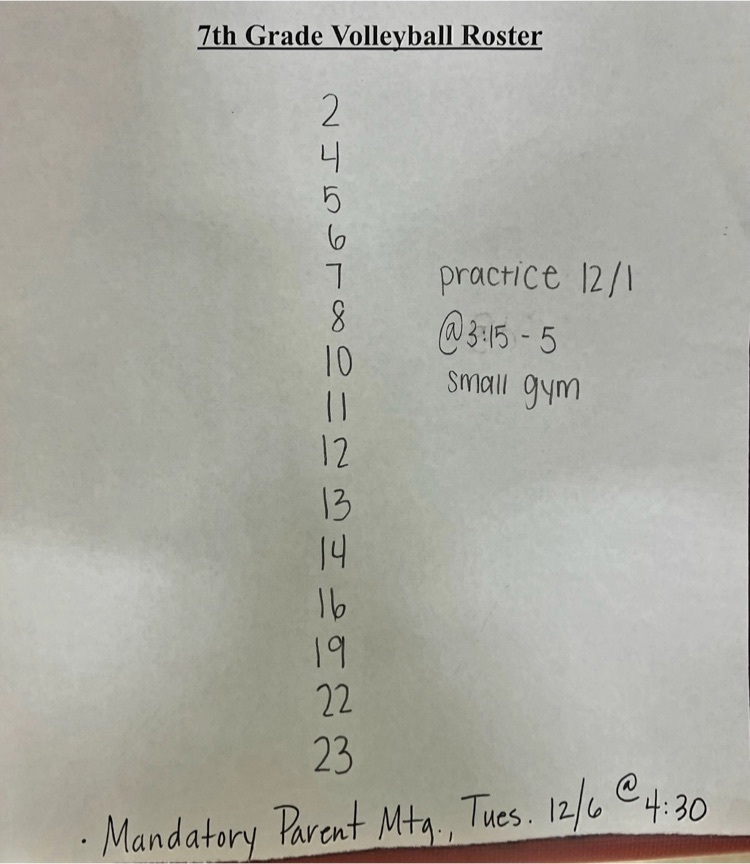 7th Grade Volleyball Roster
2
4
5
6
7
8
10
11
12
13
14
16
19
22
23
practice 12/1
@3:15 - 5
small gym
· Mandatory Parent Mtg., Tues. 12/6 @ 4:30